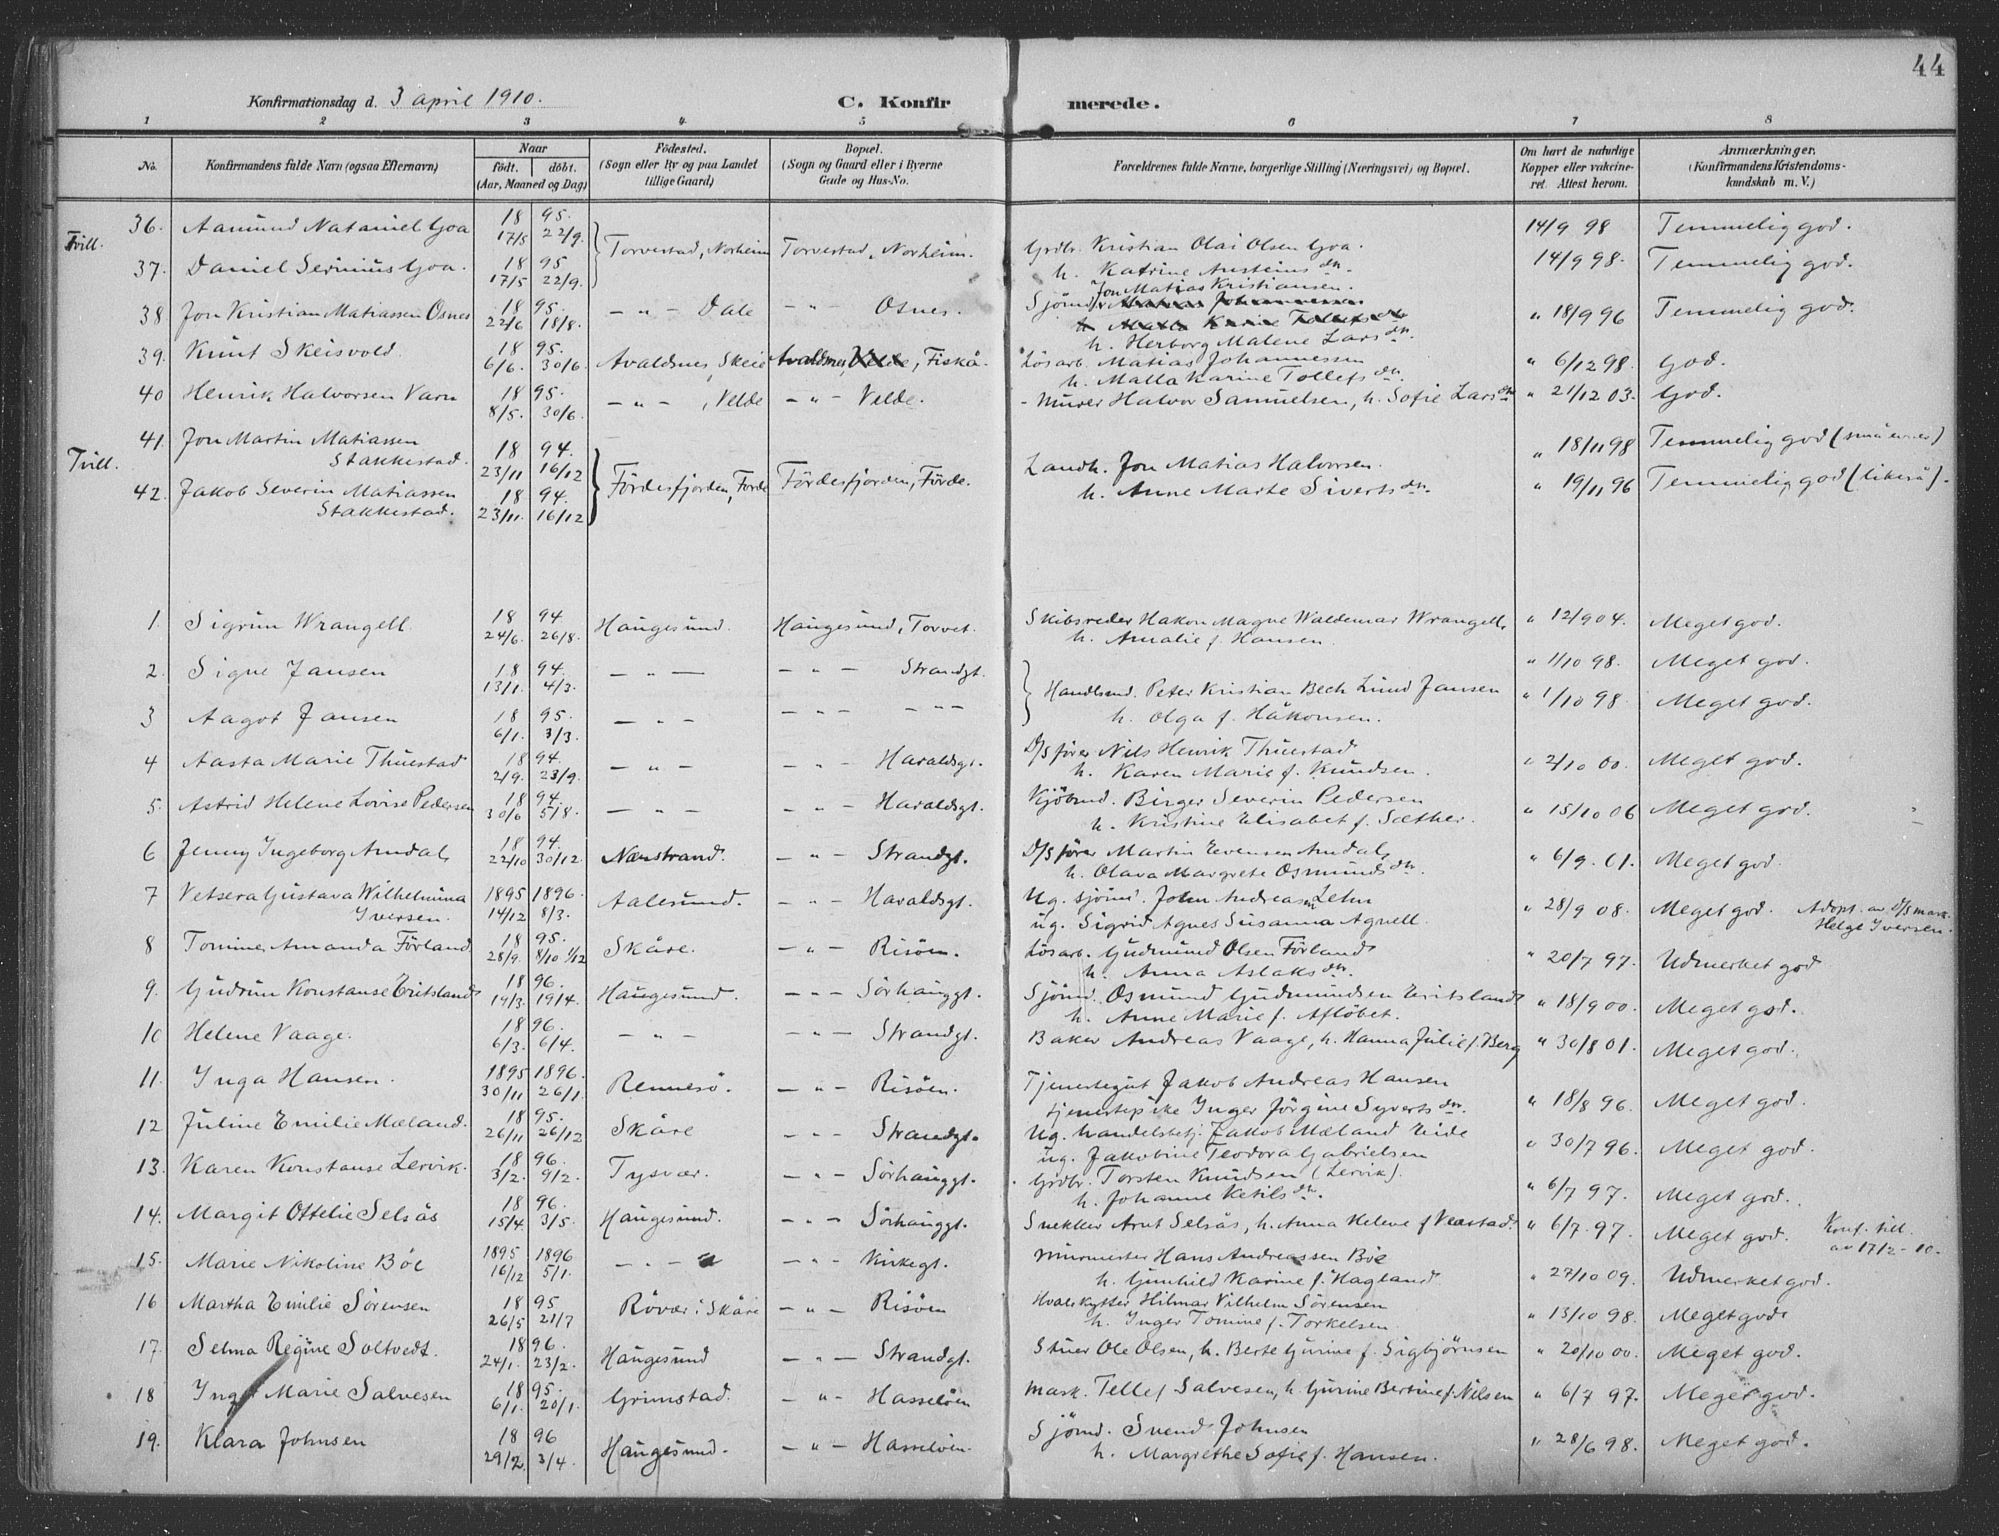 44
Konfirmationsdag d. 3 april 1910.
C. Konfirmerede.
1 2 3 4 5 6 7 8
No. | Konfirmandens fulde Navn (ogsaa Efternavn) | Naar født. døbt. (Aar, Maaned og Dag) | Fødested. (Sogn eller By og paa Landet tillige Gaard) | Bopæl. (Sogn og Gaard eller i Byerne Gade og Hus-No. | Forældrenes fulde Navne, borgerlige Stilling (Næringsvei) og Bopæl. | Om havt de naturlige Kopper eller vakcineret. Attest herom. | Anmærkninger. (Konfirmandens Kristendomskundskab m. V.)
Tvill. 36. Aamund Nataniel Goa 18 95. 17/5 22/9. Torvestad, Norheim Torvestad, Norheim. Grdbr. Kristian Olai Olsen Goa. 14/9 98 Temmelig god.
37. Daniel Serinius Goa. 18 95 17/5 22/9. h. Katrine Austeins dn. 14/9 98. Temmelig god.
38 Jon Kristian Matiassen Osnes 18 95. 22/6 18/8. — " — Dale — " — Osnes. Sjømd. Jon Matias Kristiansen. h. Herborg Malene Lars dn. " 18/9 96 Temmelig god.
39. Knut Skeisvold. 18 95. 6/6. 30/6. Avaldsnes, Skeie Avaldsnes, Velde, Fiskå. Løsarb. Matias Johannessen h. Malla Karine Tollefs dn. " 6/12 98. God.
40 Henrik Halvorsen Vara 18 95. 8/5. 30/6. — " — , Velde — " — Velde. Murer Halvor Samuelsen, h. Sofie Lars dn " 21/12 03. God.
Tvill. 41. Jon Martin Matiassen Stakkestad. 18 94. 23/11 16/12 Førdesfjorden, Førde Førdesfjorden, Førde. Landh. Jon Matias Halvorsen. " 18/11 98 Temmelig god (små evner)
42. Jakob Severin Matiassen Stakkestad. 18 94. 23/11. 16/12 h. Anne Marte Siverts dn. " 19/11 96 Temmelig god (likeså).
1. Sigrun Wrangell 18 94 24/6. 26/8. Haugesund. Haugesund, Torvet. Skibsreder Hakon Magne Waldemar Wrangell, h. Amalie f. Hansen. " 12/9 04. Meget god.
2. Signe Jansen 18 94. 13/1. 4/3. — " — — " — Strandgt. Handlsmd. Peter Kristian Bech Lund Jansen " 1/10 98. Meget god.
3 Aagot Jansen 18 95. 6/1. 3/3. — " — — " — — " — h. Olga f. Håkonsen. " 1/10 98. Meget god.
4 Aasta Marie Thuestad 18 94. 2/9. 23/9. — " — — " — Haraldsgt. D/S fører Nils Henrik Thuestad h. Karen Marie f. Knudsen. " 2/10 00. Meget god.
5. Astrid Helene Lovise Pedersen 18 94. 30/6 5/8. — " — — " — Haraldsgt. Kjøbmd. Birger Severin Pedersen h. Kristine Elisabet f. Sæther. " 15/10 06 Meget god.
6 Jenny Ingeborg Amdal, 18 94. 22/10 30/12. Nærstrand. — " — Strandgt. D/S fører Martin Evensen Amdal, h. Olava Margrete Osmunds dn. " 6/9. 01. Meget god.
7 Vetsera Gustava Wilhelmina Iversen. 1895 1896. 14/12 8/3. Aalesund. — " — Haraldsgt. Ug. sjømd. John Andreasen Lehn ug. Sigrid Agnes Susanna Agnell. " 28/9 08. Meget god. Adopt. av D/S mask. Helge Iversen.
8 Tomine Amanda Førland 18 95. 28/9. 8/10 1/12 Skåre. — " — Risøen. Løsarb. Gudmund Olsen Førland h. Anna Aslaks dn. " 20/7 97. Udmerket god
9. Gudrun Konstanse Eritsland 18 96. 19/3. 19/4. Haugesund. — " — Sørhauggt. Sjømd. Osmund Gudmundsen Eritsland h. Anne Marie f. Afløbet. " 18/9 00. Meget god.
10 Helene Vaage. 18 96. 6/3. 6/4. — " — — " — Strandgt. Baker Andreas Vaage, h. Hanna Julie f. Berg " 30/8 01. Meget god.
11. Inga Hansen. 1895 1896. 30/11 26/1. Rennesø. — " — Risøen. Tjenestegut Jakob Andreas Hansen tjenestepike Inger Jørgine Syverts dn. " 18/8 96. Meget god.
12 Juline Emilie Mæland. 18 95. 26/11 26/12 Skåre — " — Strandgt. Ug. handelsbetj. Jakob Mæland Eide ug. Jakobine Teodora Gabrielsen " 30/7 96. Meget god.
13. Karen Konstanse Lervik. 18 96. 3/2. 9/2. Tysvær. — " — Sørhauggt. Grdbr. Torsten Knudsen (Lervik). h. Johanne Ketils dn. " 6/7 97. Meget god.
14. Margit Ottelie Selsås 18 96. 15/4 3/5. Haugesund. — " — Sørhauggt. Snekker Arnt Selsås, h. Anna Helene f Veastad. " 6/7. 97. Meget god. Konf. till. av 17/2 - 10.
15. Marie Nikoline Bøe 1895 1896 16/12 5/1. — " — — " — Kirkegt. Murmester Hans Andreassen Bøe h. Gunhild Karine f. Hagland. " 27/10 09. Udmerket god.
16 Martha Emilie Sørensen 18 95 26/5 21/7 Røvær i Skåre — " — Risøen Hvalskytter Hilmar Vilhelm Sørensen h. Inger Tomine f. Torkelsen. " 13/10 98. Meget god.
17. Selma Regine Soltvedt. 18 96. 24/1. 23/2. Haugesund — " — Strandgt. Stuer Ole Olsen, h. Berte Gurine f. Sigbjørnsen " 20/10 00. Meget god.
18 Inga Marie Salvesen 18 95. 6/1. 20/1. Grimstad. " — Hasseløen Mask. Tellef Salvesen, h. Gurine Bertine f. Nilsen " 6/7 97. Meget god.
19. Klara Johnsen 18 96 29/2. 3/4. Haugesund. — " — Hasseløen. Sjømd. Svend Johnsen h. Margrethe Sofie f. Hansen. " 28/6 98. Meget god.